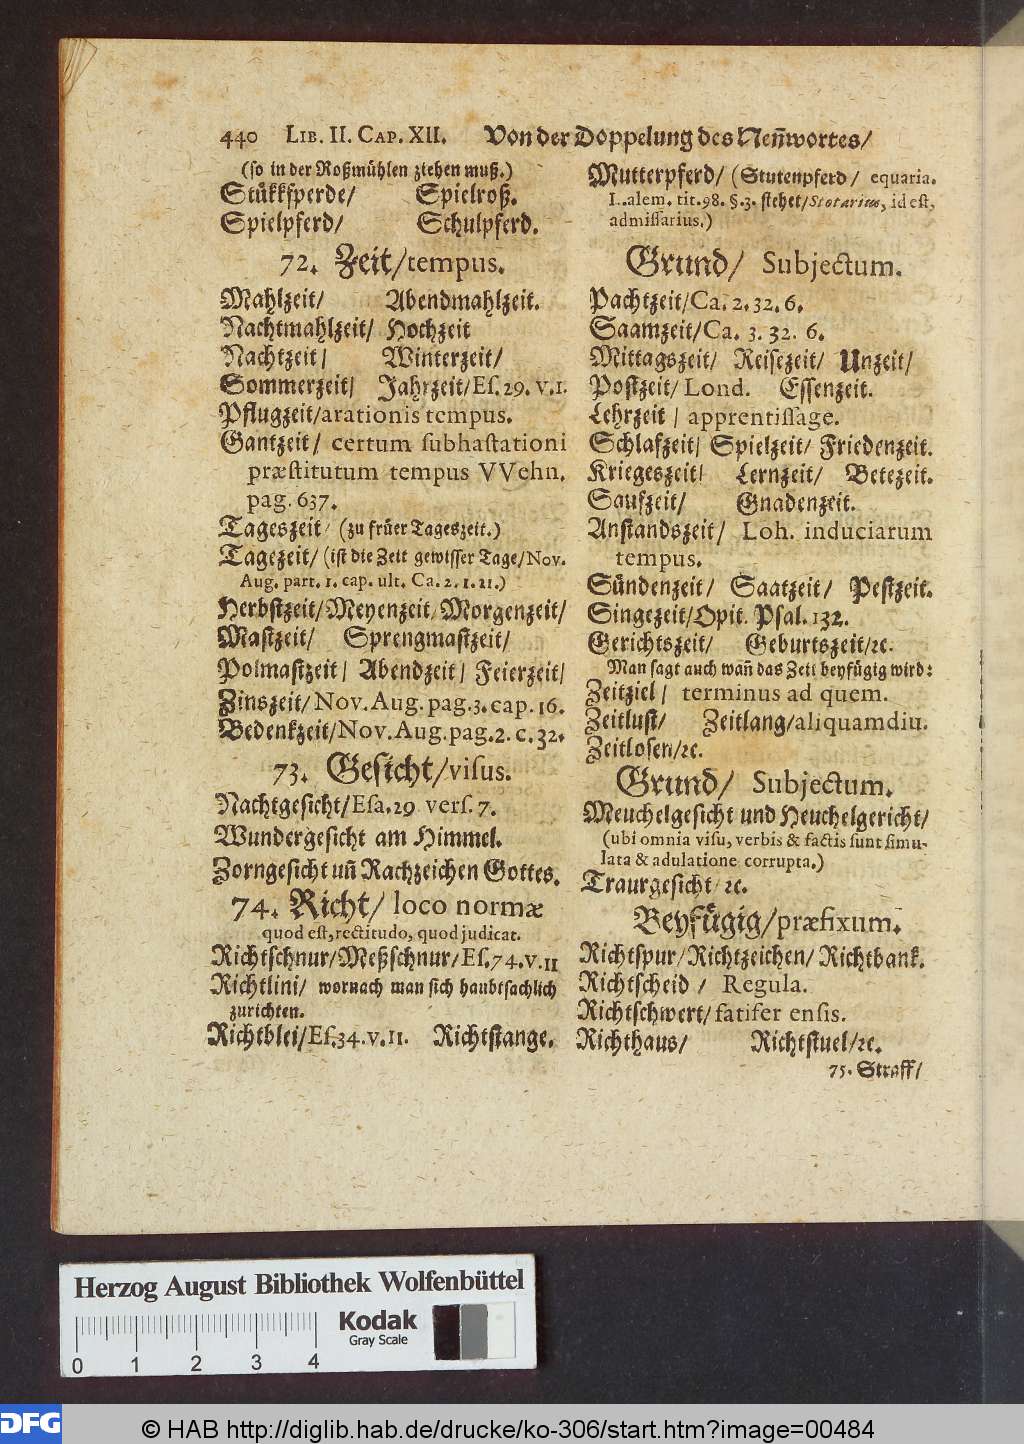 440 LIB. II. CAP. XII. Von der Doppelung des Neñwortes/
(so in der Roßmühlen ziehen muß.)
Stükkfperde/ Spielroß.
Spielpferd/ Schulpferd.
72. Zeit/tempus.
Mahlzeit/ Abendmahlzeit.
Nachtmahlzeit/ Hochzeit
Nachtzeit/ Winterzeit/
Sommerzeit/ Jahrzeit/Eſ. 29. v. 1.
Pflugzeit/arationis tempus.
Gantzeit/ certum ſubhaſtationi
præſtitutum tempus VVehn.
pag. 637.
Tageszeit/ (zu früer Tageszeit.)
Tagezeit/ (ist die Zeit gewisser Tage/Nov.
Aug. part. 1. cap. ult. Ca. 2. 1. 21.)
Herbstzeit/Meyenzeit/Morgenzeit/
Mastzeit/ Sprengmastzeit/
Polmastzeit/ Abendzeit/ Feierzeit/
Zinszeit/Nov. Aug. pag. 3. cap. 16.
Bedenkzeit/Nov. Aug. pag. 2. c. 32.
73. Gesicht/viſus.
Nachtgesicht/Eſa. 29 verſ. 7.
Wundergesicht am Himmel.
Zorngesicht uñ Rachzeichen Gottes.
74. Richt/ loco normæ
quod eſt, rectitudo, quod judicat.
Richtschnur/Meßschnur/Eſ. 74. v. 11
Richtlini/ wornach man sich haubtsachlich
zurichten.
Richtblei/Eſ. 34. v. 11. Richtstange.
Mutterpferd/ (Stutenpferd/ equaria.
L. alem. tit. 98. §. 3. stehet/Stotarius, id eſt,
admiſſarius.)
Grund/ Subjectum.
Pachtzeit/Ca. 2. 32. 6.
Saamzeit/Ca. 3. 32. 6.
Mittagszeit/ Reisezeit/ Unzeit/
Postzeit/ Lond. Essenzeit.
Lehrzeit / apprentiſſage.
Schlafzeit/ Spielzeit/ Friedenzeit.
Kriegeszeit/ Lernzeit/ Betezeit.
Saufzeit/ Gnadenzeit.
Anstandszeit/ Loh. induciarum
tempus.
Sündenzeit/ Saatzeit/ Pestzeit.
Singezeit/Opit. Psal. 132.
Gerichtszeit/ Geburtszeit/ꝛc.
Man sagt auch wañ das Zeit beyfügig wird:
Zeitziel/ terminus ad quem.
Zeitlust/ Zeitlang/aliquamdiu.
Zeitlosen/ꝛc.
Grund/ Subjectum.
Meuchelgesicht und Heuchelgericht/
(ubi omnia viſu, verbis & factis ſunt ſimu-
lata & adulatione corrupta.)
Traurgesicht/ ꝛc.
Beyfügig/præfixum.
Richtspur/Richtzeichen/ Richtbank.
Richtscheid / Regula.
Richtschwert/fatifer enſis.
Richthaus/ Richtstuel/ꝛc.
75. Straff/
Herzog August Bibliothek Wolfenbüttel
Kodak
Gray Scale
0 1 2 3 4
DFG © HAB http://diglib.hab.de/drucke/ko-306/start.htm?image=00484